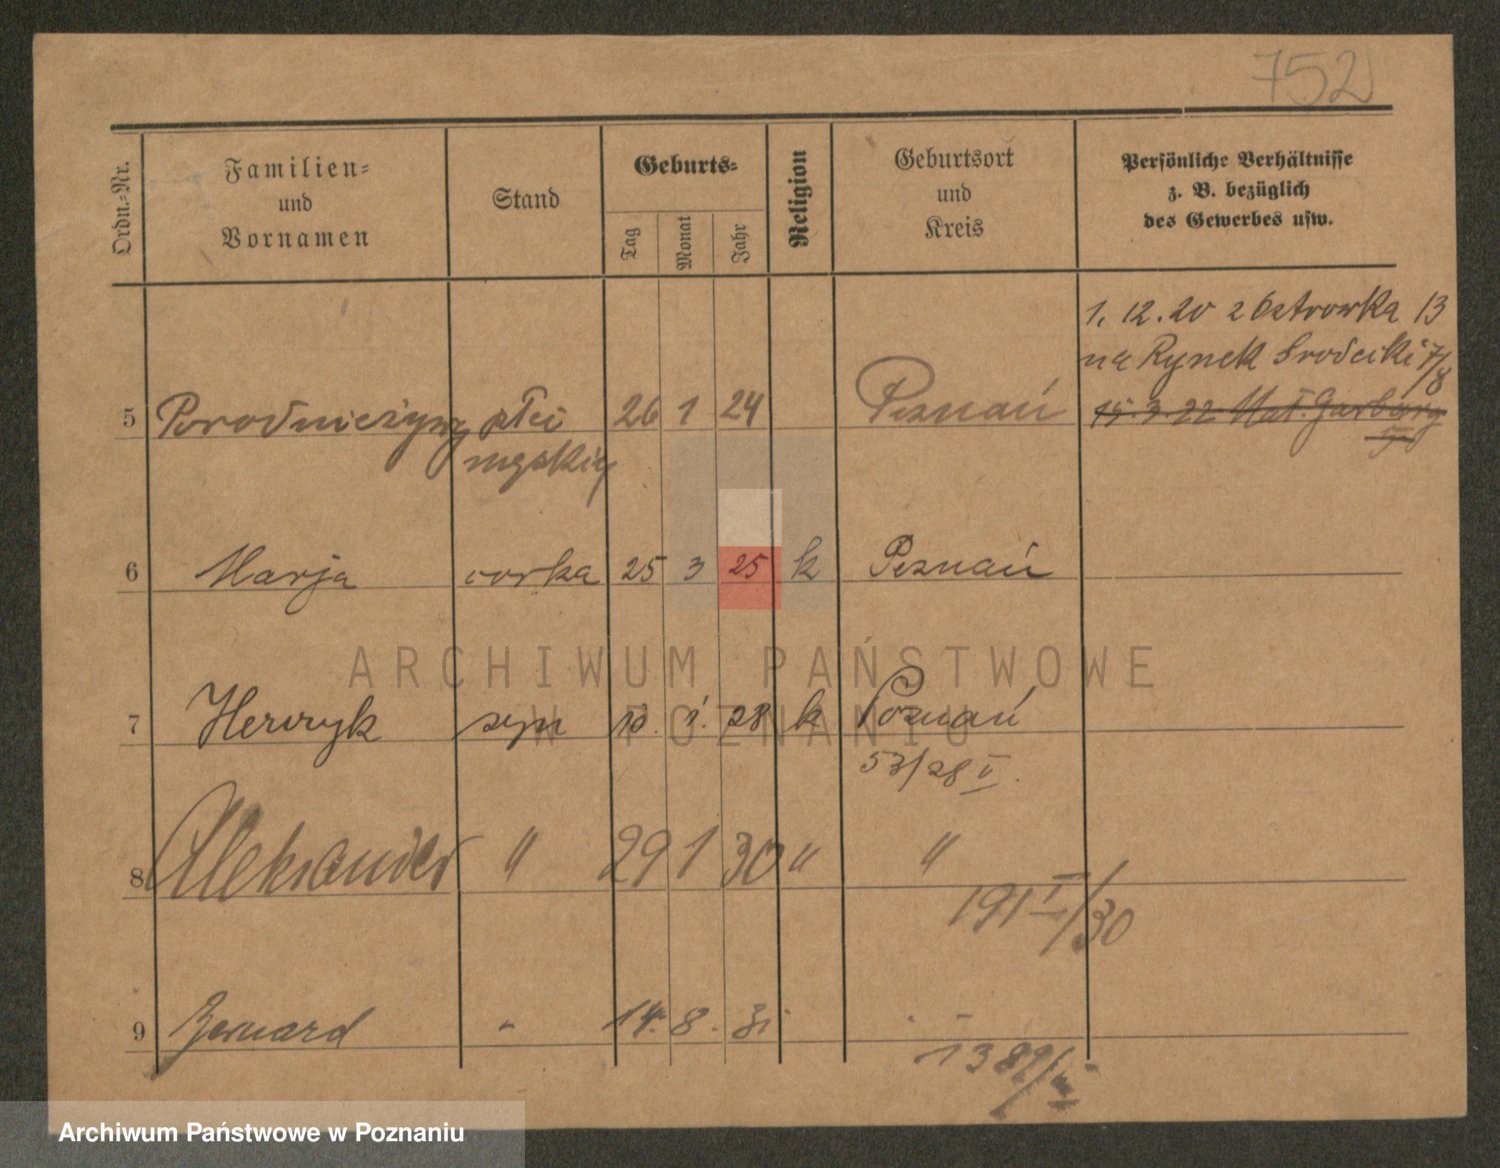 752
Ordn.-Nr.
Familien-
und
Vornamen
Stand
Geburts-
Tag
Monat
Jahr
Religion
Geburtsort
und
Kreis
Persönliche Verhältnisse
z. B. bezüglich
des Gewerbes usw.
1. 12. 20 z Ostrowka 13
na Rynek Srodecki 7/8
5 płci 26 1 24 Poznań 15. 3. 22 Garbary
męskiej
6 Marja corka 25 3 25 k Poznań
7 Henryk syn 1. 28 k Poznań
53/28 V.
8 Aleksander " 29 1 30 " "
191 I/30
9 Bernard " 14. 8. 31
1389/
ARCHIWUM PAŃSTWOWE
W POZNANIU
Archiwum Państwowe w Poznaniu